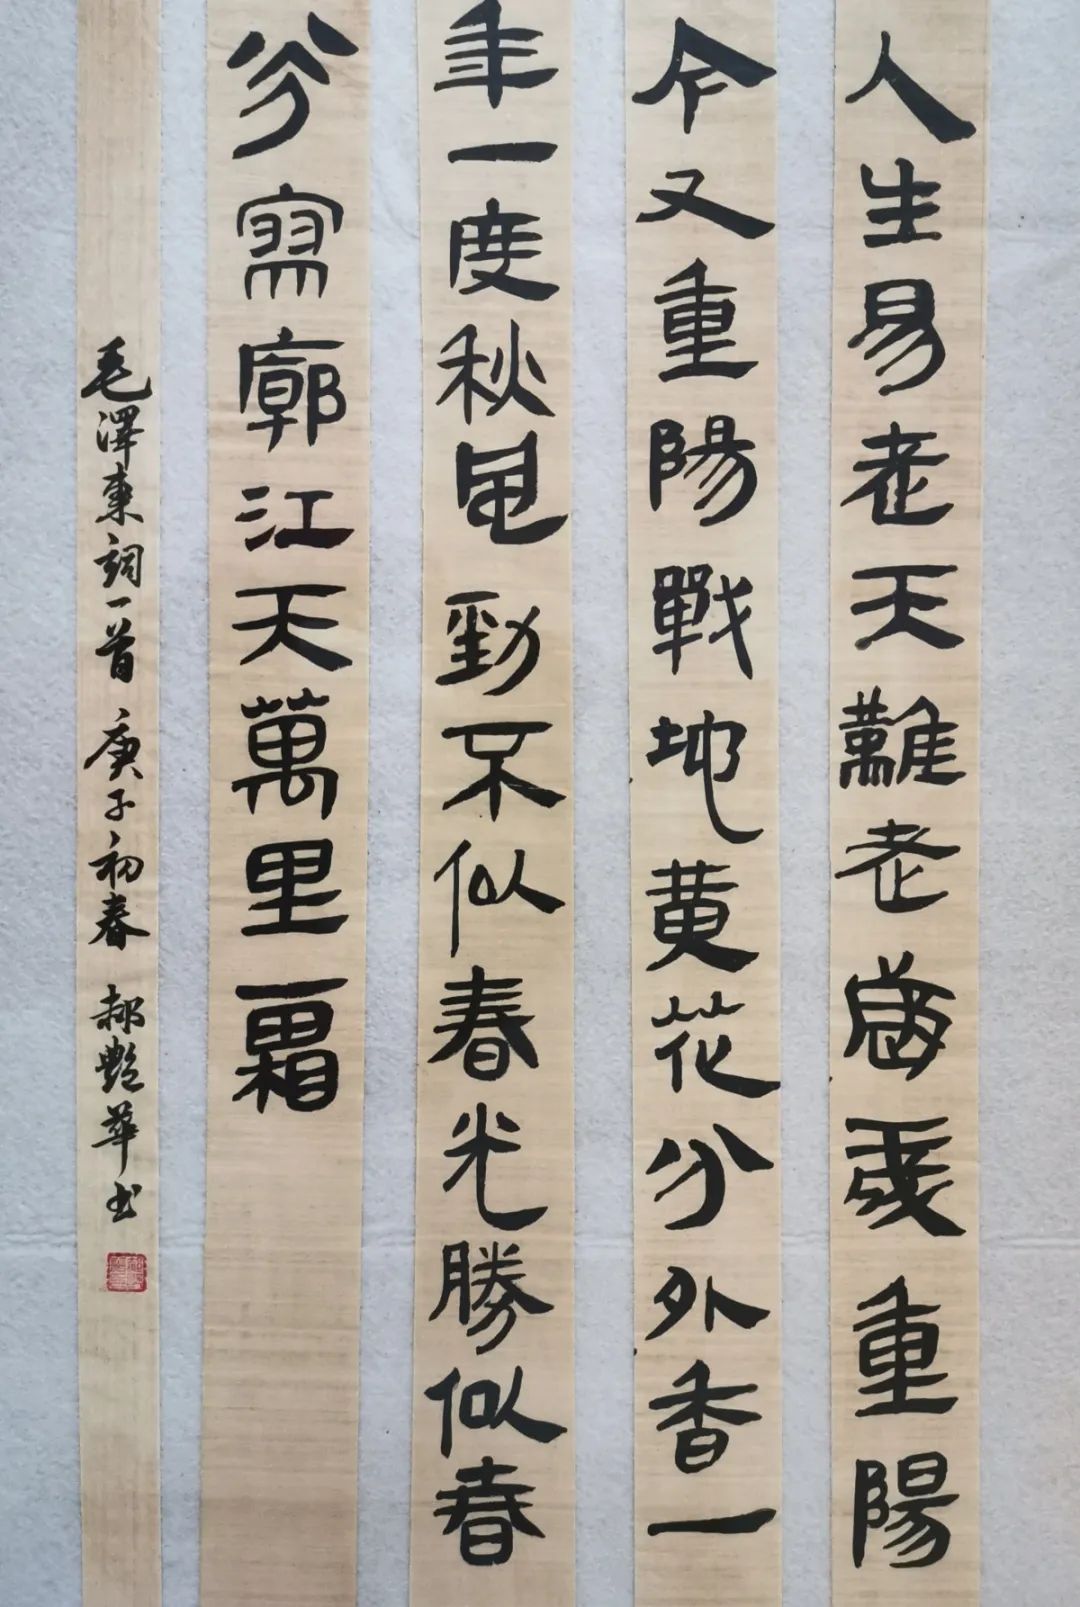 人生易老天難老歲歲重陽
今又重陽戰地黃花分外香一
年一度秋風勁不似春光勝似春
寥廓江天萬里霜
毛澤東詞一首 庚子初春 郝艷華书